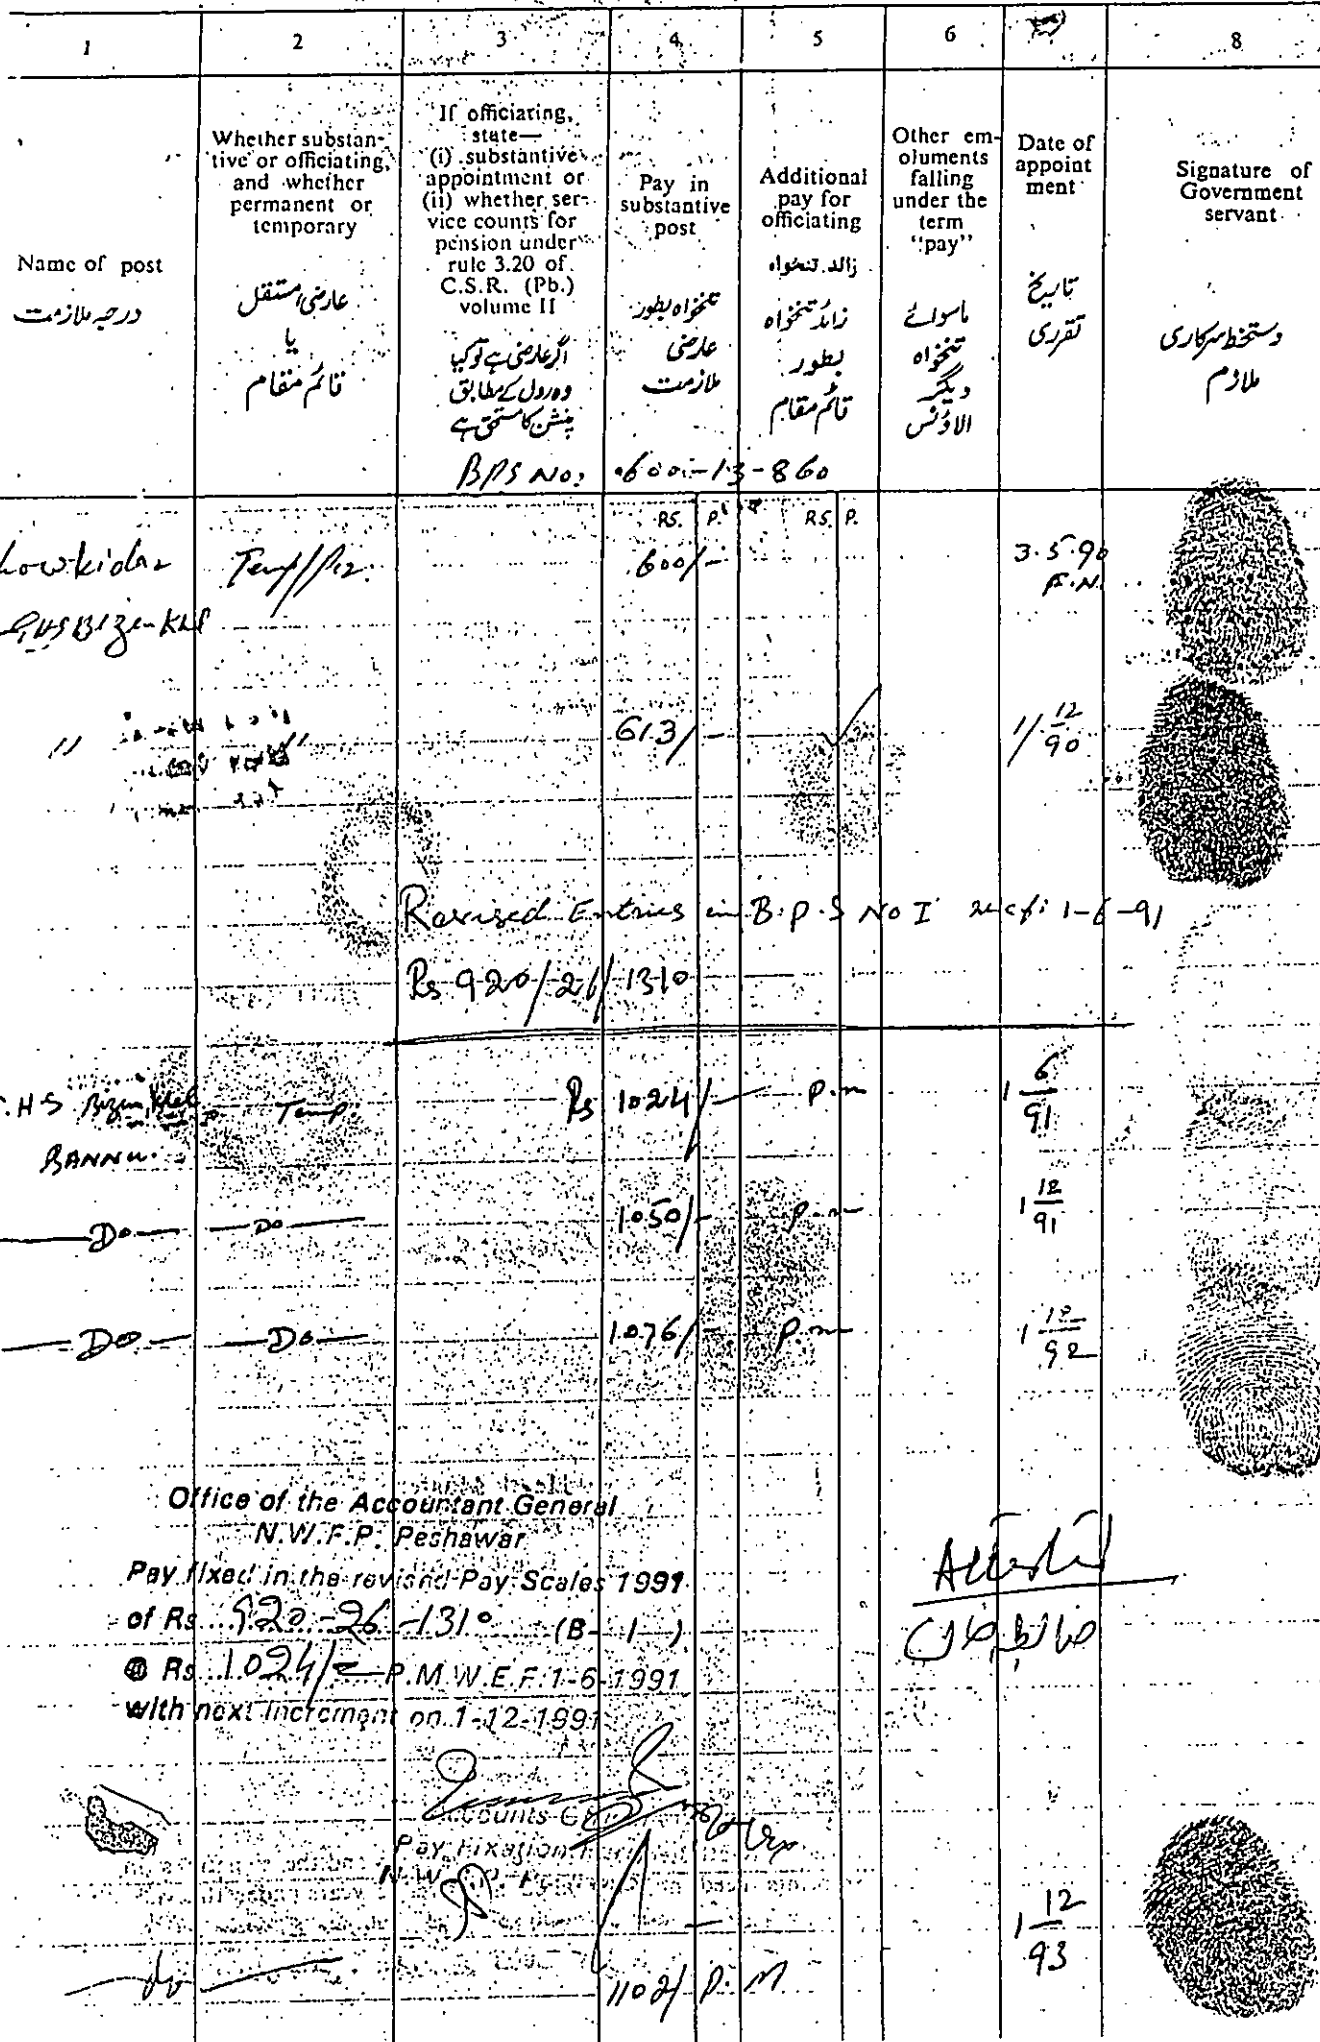 1 2 3 4 5 6 8
Name of post
درجہ ملازمت
Whether substan-
tive or officiating,
and whether
permanent or
temporary
عارضی مستقل
یا
قائم مقام
If officiating,
state—
(i) substantive
appointment or
(ii) whether ser-
vice counts for
pension under
rule 3.20 of
C.S.R. (Pb.)
volume II
اگر عارضی ہے تو کیا
وہ رول کے مطابق
پنشن کا مستحق ہے
Pay in
substantive
post
تنخواہ بطور
عارضی
ملازمت
Additional
pay for
officiating
زائد تنخواہ
زائد تنخواہ
بطور
قائم مقام
Other em-
oluments
falling
under the
term
"pay"
ماسوائے
تنخواہ
دیگر
الاؤنس
Date of
appoint
ment
تاریخ
تقرری
Signature of
Government
servant
دستخط سرکاری
ملازم
BPS No: 600-13-860
RS. P. RS. P.
howkidar 600/- 3.5.90
F.N.
" 613/- 1/12/90
Revised Entries in B.P.S No I 1-6-91
Rs 920/26/1310
.H.S Temp Rs 1024/- P.m 1 6/91
BANNU.
Do Do 1050/- p.m 1 12/91
Do Do 1076/- p.m 1 12/92
Office of the Accountant General
N.W.F.P. Peshawar
Pay fixed in the revised Pay Scales 1991
of Rs 920-26-1310 (B-1)
@ Rs 1024/= P.M.W.E.F. 1-6-1991
with next increment on 1-12-1991
Attested
Accounts
Pay Fixation
N.W.
1 12/93
do 1102/ P.M